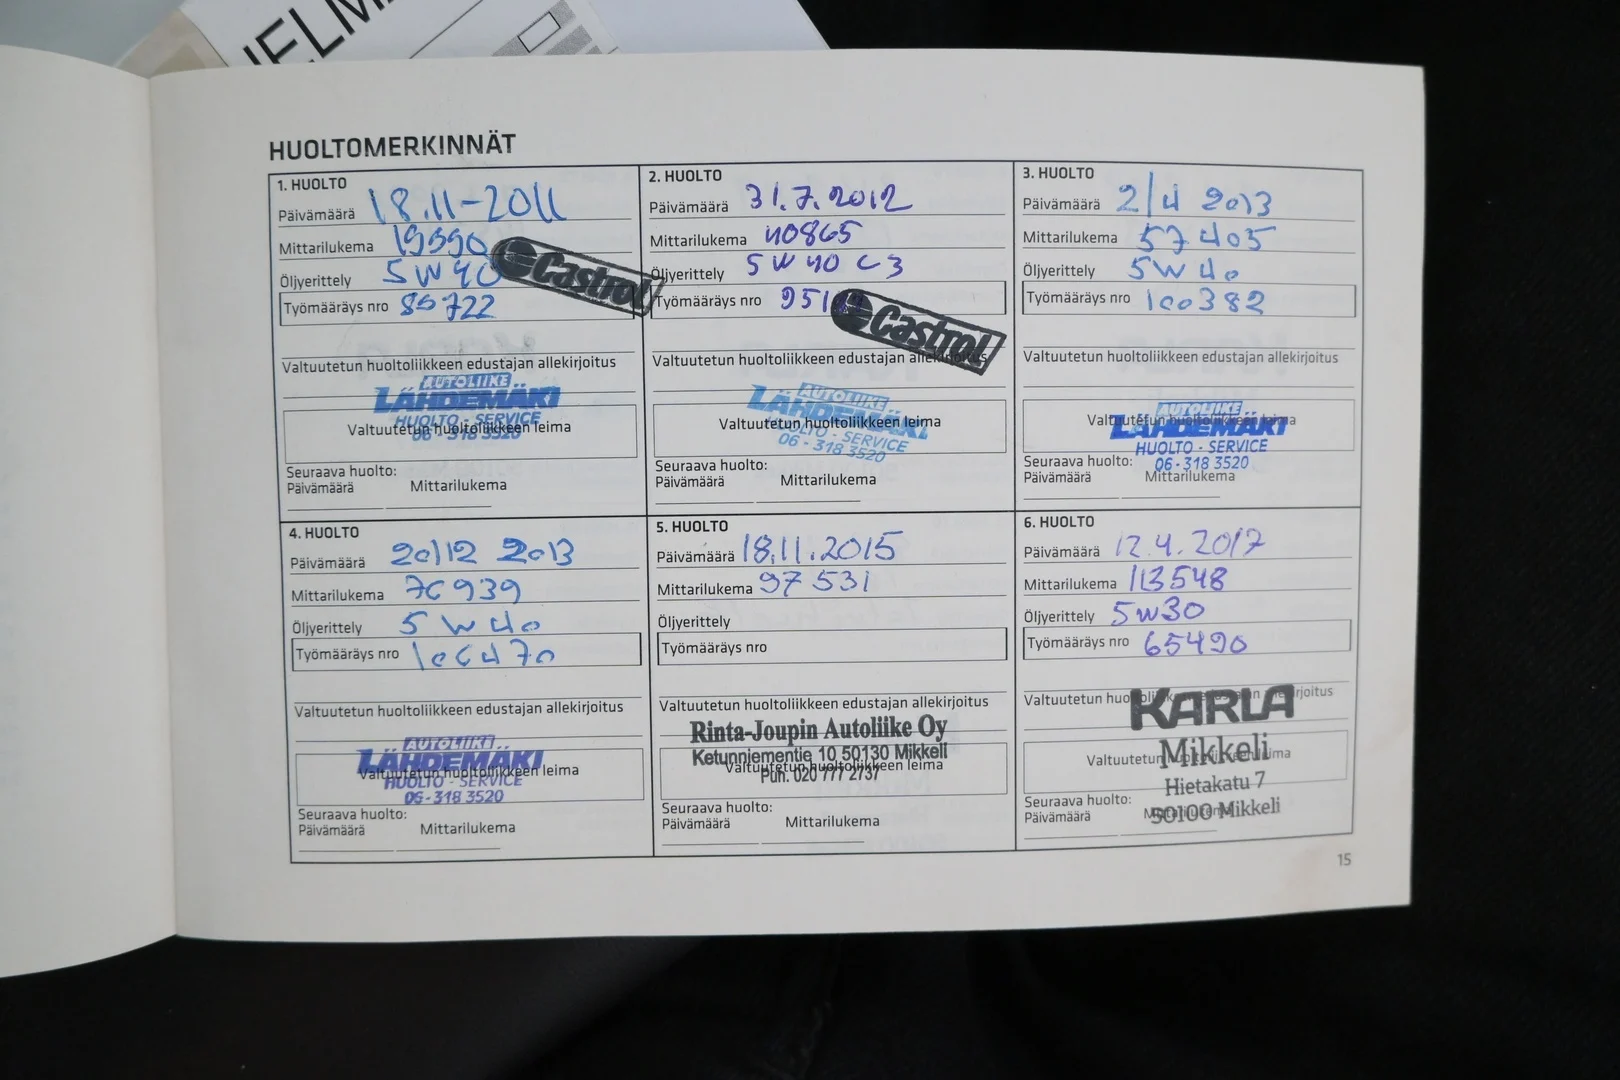 HUOLTOMERKINNÄT
1. HUOLTO
Päivämäärä 18.11-2011
Mittarilukema 19990
Öljyerittely 5W40
Castrol
Työmääräys nro 89722
Valtuutetun huoltoliikkeen edustajan allekirjoitus
AUTOLIIKE
LÄHDEMÄKI
HUOLTO - SERVICE
Valtuutetun huoltoliikkeen leima
06 - 318 3520
Seuraava huolto:
Päivämäärä Mittarilukema
2. HUOLTO
Päivämäärä 31.7.2012
Mittarilukema 40865
Öljyerittely 5W40 C3
Työmääräys nro
Castrol
Valtuutetun huoltoliikkeen edustajan allekirjoitus
AUTOLIIKE
LÄHDEMÄKI
Valtuutetun huoltoliikkeen leima
HUOLTO - SERVICE
06 - 318 3520
Seuraava huolto:
Päivämäärä Mittarilukema
3. HUOLTO
Päivämäärä 2/4 2013
Mittarilukema 57405
Öljyerittely 5W40
Työmääräys nro 100382
Valtuutetun huoltoliikkeen edustajan allekirjoitus
AUTOLIIKE
Valtuutetun huoltoliikkeen leima
LÄHDEMÄKI
HUOLTO - SERVICE
06 - 318 3520
Seuraava huolto:
Päivämäärä Mittarilukema
4. HUOLTO
Päivämäärä 20/12 2013
Mittarilukema 76939
Öljyerittely 5W40
Työmääräys nro 106470
Valtuutetun huoltoliikkeen edustajan allekirjoitus
AUTOLIIKE
LÄHDEMÄKI
Valtuutetun huoltoliikkeen leima
HUOLTO - SERVICE
06 - 318 3520
Seuraava huolto:
Päivämäärä Mittarilukema
5. HUOLTO
Päivämäärä 18.11.2015
Mittarilukema 97531
Öljyerittely
Työmääräys nro
Valtuutetun huoltoliikkeen edustajan allekirjoitus
Rinta-Joupin Autoliike Oy
Ketunniementie 10 50130 Mikkeli
Valtuutetun huoltoliikkeen leima
Puh. 020 777 2737
Seuraava huolto:
Päivämäärä Mittarilukema
6. HUOLTO
Päivämäärä 12.4.2017
Mittarilukema 113548
Öljyerittely 5W30
Työmääräys nro 65490
Valtuutetun huoltoliikkeen edustajan allekirjoitus
KARLA
Mikkeli
Valtuutetun huoltoliikkeen leima
Hietakatu 7
50100 Mikkeli
Seuraava huolto:
Päivämäärä Mittarilukema
15